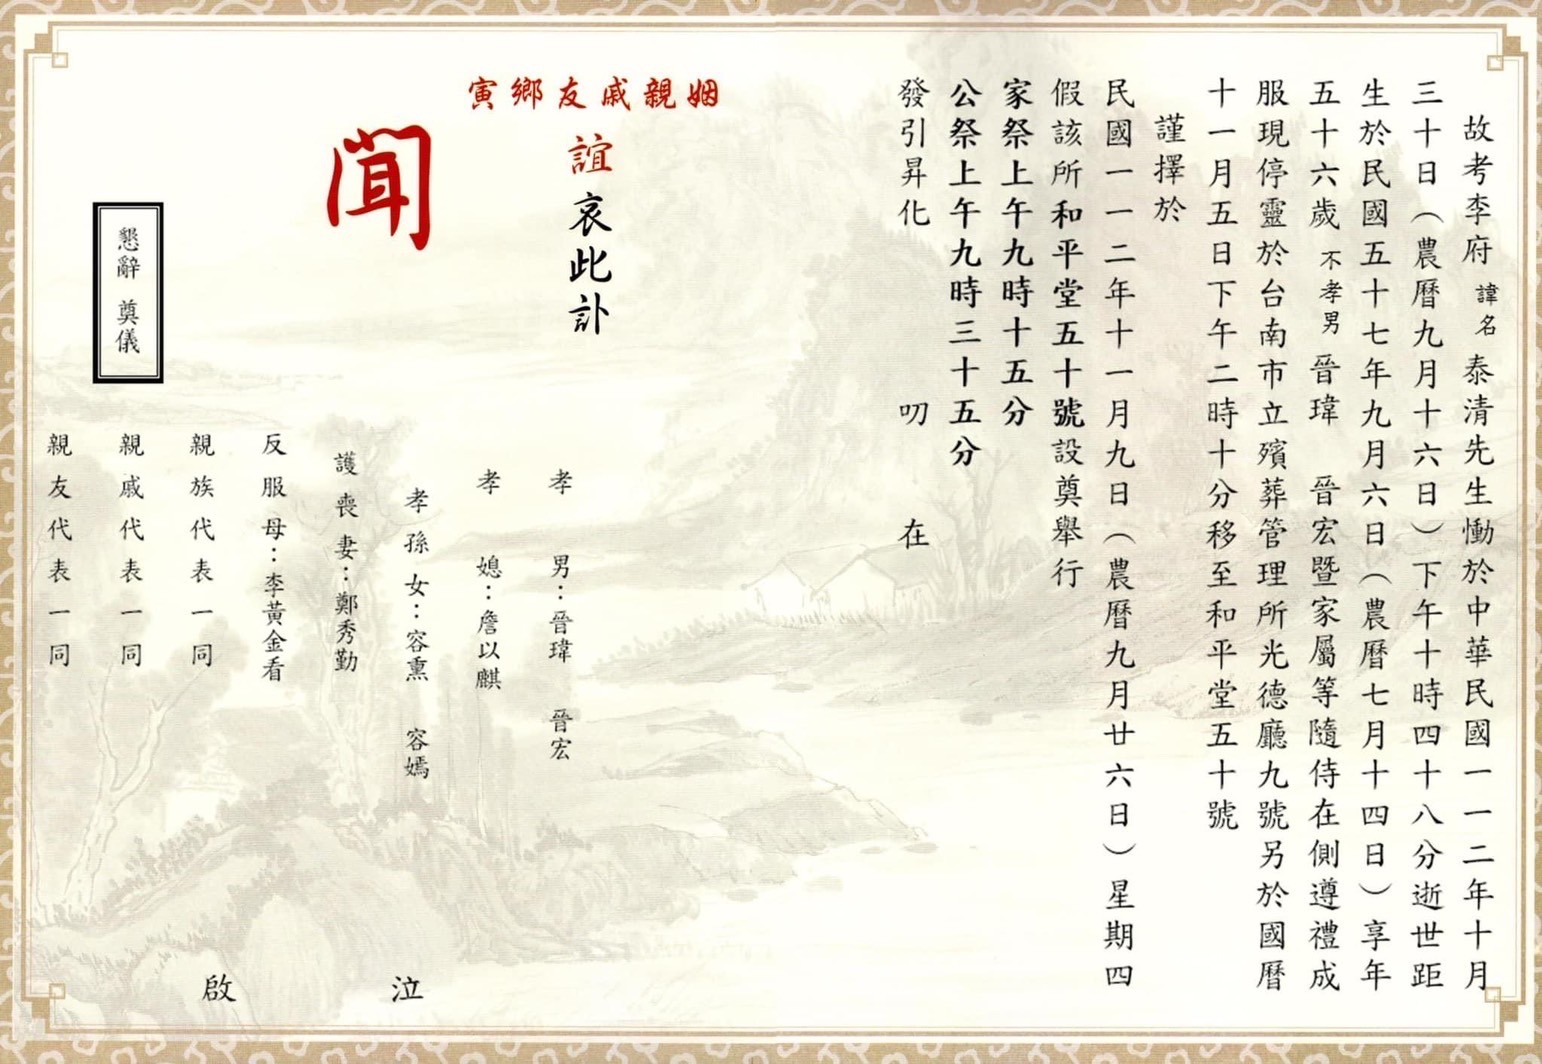 故考李府 諱名 泰清先生慟於中華民國一一二年十月
三十日（農曆九月十六日）下午十時四十八分逝世距
生於民國五十七年九月六日（農曆七月十四日）享年
五十六歲 不孝男 晉瑋 晉宏暨家屬等隨侍在側遵禮成
服現停靈於台南市立殯葬管理所光德廳九號另於國曆
十一月五日下午二時十分移至和平堂五十號
謹擇於
民國一一二年十一月九日（農曆九月廿六日）星期四
假該所和平堂五十號設奠舉行
家祭上午九時十五分
公祭上午九時三十五分
發引昇化 叨 在
姻親戚友鄉寅
誼哀此訃
聞
孝 男：晉瑋 晉宏
孝 媳：詹以麒
孝孫女：容熏 容嫣
護喪妻：鄭秀勤
反服母：李黃金看
親族代表一同
親戚代表一同
親友代表一同
泣
啟
懇辭 奠儀